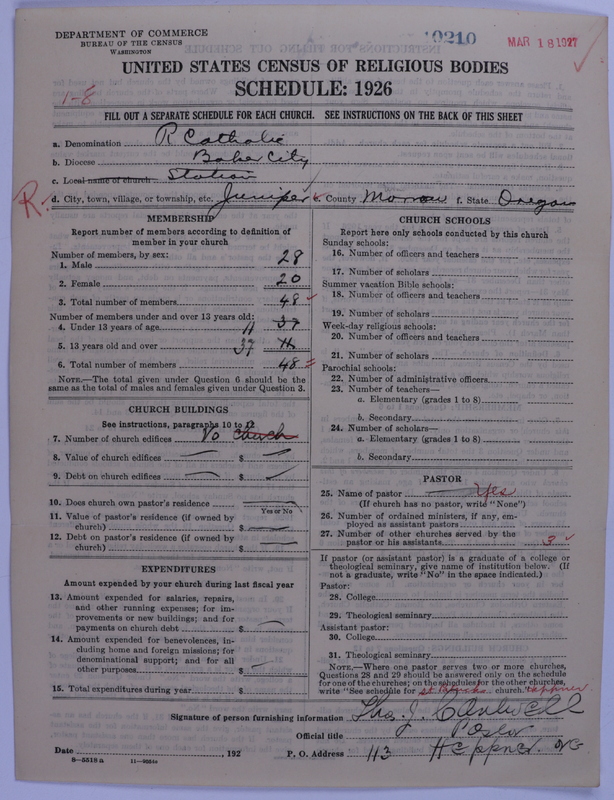 DEPARTMENT OF COMMERCE
BUREAU OF THE CENSUS
WASHINGTON
10210
MAR 18 1927
UNITED STATES CENSUS OF RELIGIOUS BODIES
SCHEDULE: 1926
1-8
FILL OUT A SEPARATE SCHEDULE FOR EACH CHURCH. SEE INSTRUCTIONS ON THE BACK OF THIS SHEET
a. Denomination R Catholic
b. Diocese Baker City
c. Local name of church Station
R. d. City, town, village, or township, etc. Juniper e. County Morrow f. State Oregon
MEMBERSHIP
Report number of members according to definition of
member in your church
Number of members, by sex:
1. Male 28
2. Female 20
3. Total number of members 48
Number of members under and over 13 years old:
4. Under 13 years of age 11 37
5. 13 years old and over 37 11
6. Total number of members 48
NOTE.—The total given under Question 6 should be the
same as the total of males and females given under Question 3.
CHURCH BUILDINGS
See instructions, paragraphs 10 to 12
7. Number of church edifices No church
8. Value of church edifices $
9. Debt on church edifices $
10. Does church own pastor's residence
Yes or No
11. Value of pastor's residence (if owned by
church) $
12. Debt on pastor's residence (if owned by
church) $
EXPENDITURES
Amount expended by your church during last fiscal year
13. Amount expended for salaries, repairs,
and other running expenses; for im-
provements or new buildings; and for
payments on church debt $
14. Amount expended for benevolences, in-
cluding home and foreign missions; for
denominational support; and for all
other purposes $
15. Total expenditures during year $
CHURCH SCHOOLS
Report here only schools conducted by this church
Sunday schools:
16. Number of officers and teachers
17. Number of scholars
Summer vacation Bible schools:
18. Number of officers and teachers
19. Number of scholars
Week-day religious schools:
20. Number of officers and teachers
21. Number of scholars
Parochial schools:
22. Number of administrative officers
23. Number of teachers—
a. Elementary (grades 1 to 8)
b. Secondary
24. Number of scholars—
a. Elementary (grades 1 to 8)
b. Secondary
PASTOR
25. Name of pastor Yes
(If church has no pastor, write "None")
26. Number of ordained ministers, if any, em-
ployed as assistant pastors
27. Number of other churches served by the
pastor or his assistants 3
If pastor (or assistant pastor) is a graduate of a college or
theological seminary, give name of institution below. (If
not a graduate, write "No" in the space indicated.)
Pastor:
28. College
29. Theological seminary
Assistant pastor:
30. College
31. Theological seminary
NOTE.—Where one pastor serves two or more churches,
Questions 28 and 29 should be answered only on the schedule
for one of the churches; on the schedules for the other churches,
write "See schedule for St. church, Heppner
Signature of person furnishing information Thos. J. Cantwell
Official title Pastor
Date , 192 P. O. Address 113 Heppner, ORG
8-5518 a